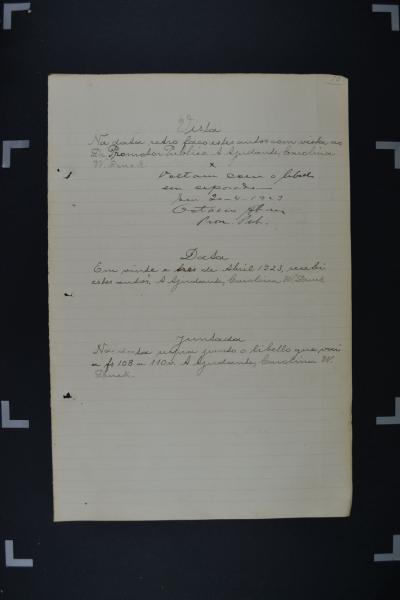 Vista
Na data retro faço estes autos com vista ao
Dr. Promotor Publico. A Ajudante, Carolina
W.
Voltam com o libello
em separado
Em 20-4-1923
Prom. Pub.
Data
Em vinte e tres de Abril 1923, recebi
estes autos, A Ajudante, Carolina W.
Juntada
Na data supra junto o libello que vai
a fs 108 a 110v. A Ajudante, Carolina W.